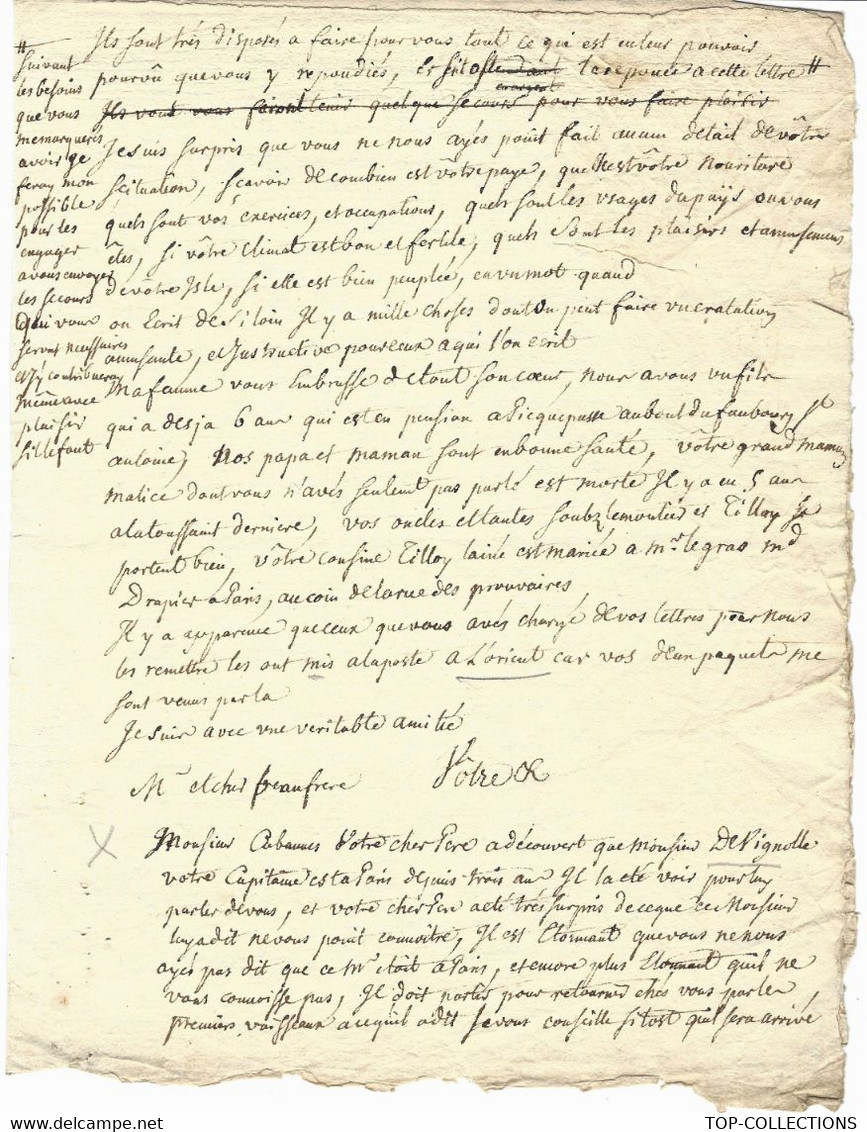 Ils sont trés disposés a faire pour vous tout ce qui est en leur pouvoir
pourvû que vous y repondiés, et la reponce a cette lettre #
Ils vous feront tenir quelque secours pour vous faire plaisir
Je suis surpris que vous ne nous ayés point fait aucun détail de vôtre
scituation, sçavoir de combien est vôtre paye, quelle est vôtre nouriture
quels sont vos exercices, et occupations, quels sont les usages du païs ou vous
êtes, si vôtre climat est bon et fertile, quels sont les plaisirs et amusemens
de votre Isle, si elle est bien peuplée, en un mot quand
on Ecrit de Si loin Il y a mille choses dont on peut faire une relation
amusante, et Instructive pour ceux a qui l'on ecrit
Ma femme vous Embrasse de tout son cœur, nous avons un fils
qui a desja 6 ans qui est en pension a Picquepusse au bout du faubourg St
antoine, Nos papa et maman sont en bonne santé, vôtre grand maman
malice dont vous n'avés seulemt pas parlé est morte Il y a eu 5 ans
a la toussaint derniere, vos oncles et tantes et Tilloy se
portent bien, vôtre cousine Tilloy lainée est mariée a mr. le gras md
Drapier a Paris, au coin de la rue des prouvaires
Il y a apparence que ceux que vous avés chargé de vos lettres pour nous
les remettre les ont mis a la poste a L'orient car vos deux paquets me
sont venus par la
Je suis avec une veritable amitié
Mr et cher beaufrere Vôtre &
#
suivant
les besoins
que vous
me marquerés
avoir je
feray mon
possible
pour les
engager
a vous envoyer
les secours
qui vous
seront necessaires
et j'y contribueray
même avec
plaisir
s'ille faut
X
Monsieur Cabannes Votre cher Pere a découvert que Monsieur De Vignolle
votre Capitaine est a Paris depuis trois ans Il la été voir pour luy
parler de vous, et votre cher Pere a eté trés surpris de ce que ce Monsieur
luy a dit ne vous point connoître, Il est Etonnant que vous ne nous
ayés pas dit que ce Mr étoit a Paris, et encore plus Etonnant qu'il ne
vous connoisse pas, Il doit partir pour retourner chés vous par les
premiers vaisseaux a ce qu'il a dit Je vous conseille sitost qu'il sera arrivé
TOP-COLLECTIONS